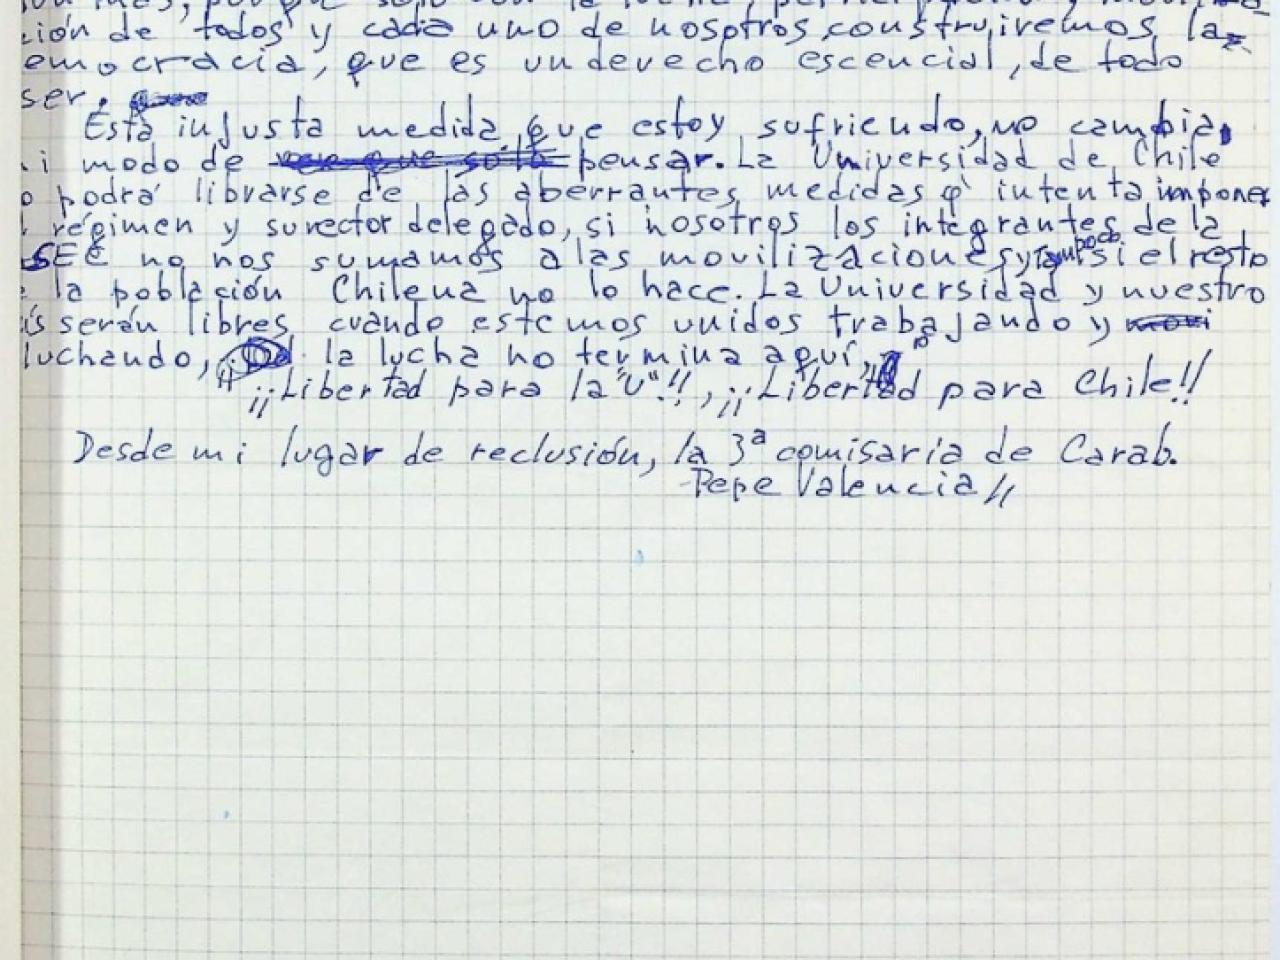 ción de todos y cada uno de nosotros, construiremos la
emocracia, que es un derecho escencial, de todo
ser.
Esta injusta medida, que estoy sufriendo, no cambia
i modo de pensar. La Universidad de Chile
o podrá librarse de las aberrantes medidas q' intenta imponer
l régimen y su rector delegado, si nosotros los integrantes de la
SEC no nos sumamos a las movilizaciones y tampoco si el resto
e la población Chilena no lo hace. La Universidad y nuestro
ís serán libres, cuando estemos unidos trabajando y
luchando, la lucha no termina aquí,
¡¡Libertad para la "U"!!, ¡¡Libertad para Chile!!
Desde mi lugar de reclusión, la 3ª comisaría de Carab.
Pepe Valencia //